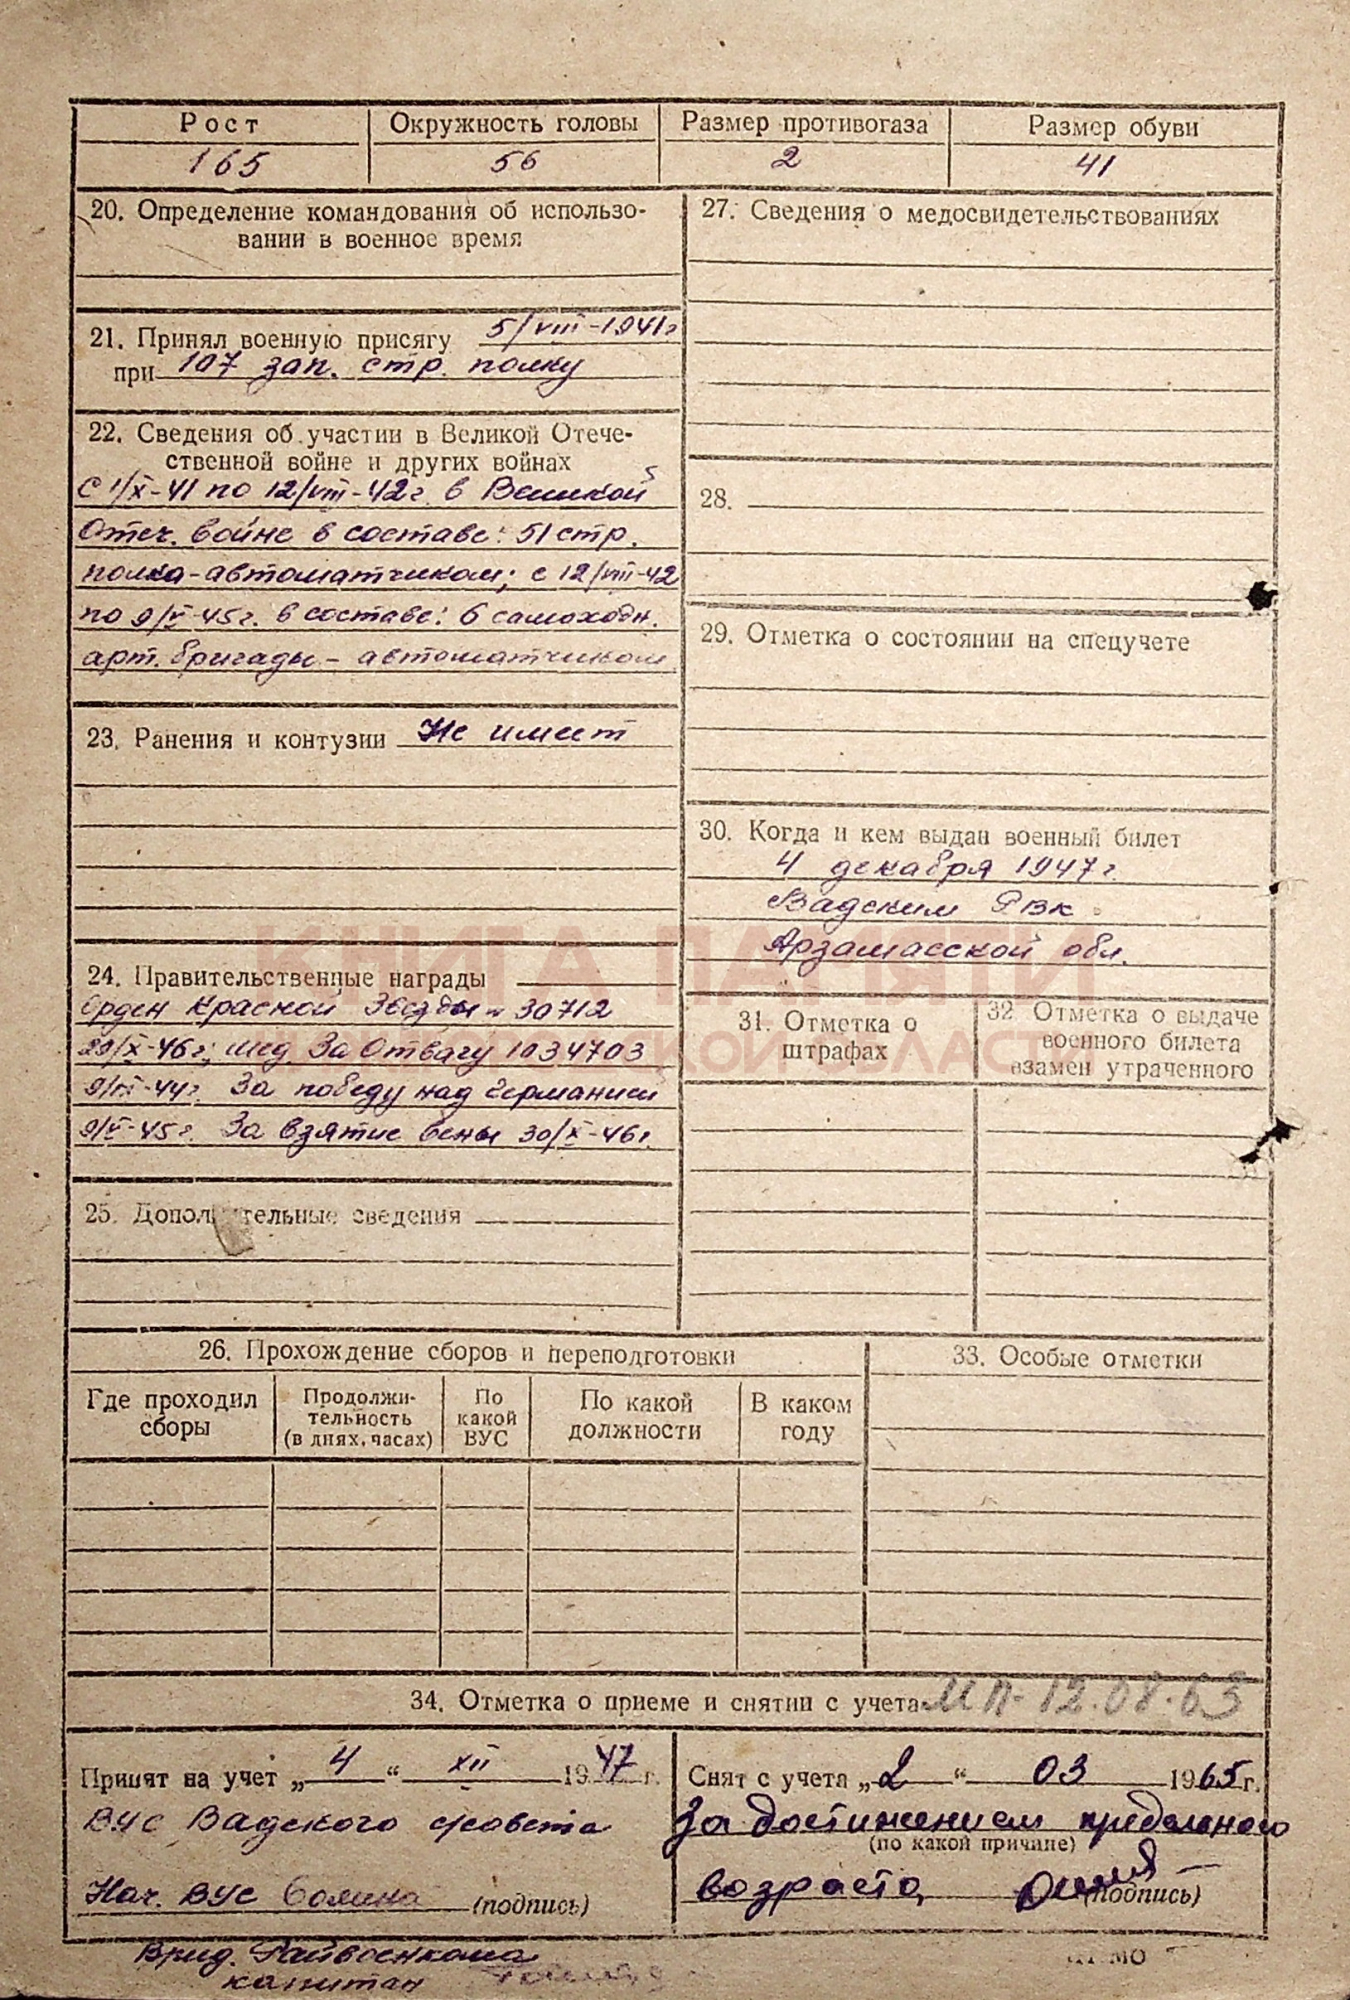 Рост Окружность головы Размер противогаза Размер обуви
165 56 2 41
20. Определение командования об использо-
вании в военное время
21. Принял военную присягу 5/VIII-1941г
при 107 зап. стр. полку
22. Сведения об участии в Великой Отече-
ственной войне и других войнах
С 1/X-41 по 12/VIII-42г. в Великой
Отеч. войне в составе: 51 стр.
полка-автоматчиком; с 12/VIII-42
по 9/V-45г. в составе: 6 самоходн.
арт. бригады - автоматчиком.
23. Ранения и контузии Не имеет
24. Правительственные награды
Орден Красной Звезды № 30712
29/X-46г; мед. За Отвагу 1034703
9/III-44г. За победу над Германией
9/V-45г. За взятие Вены 30/X-46г.
25. Дополнительные сведения
27. Сведения о медосвидетельствованиях
28.
29. Отметка о состоянии на спецучете
30. Когда и кем выдан военный билет
4 декабря 1947г.
Вадским РВК
Арзамасской обл.
31. Отметка о
штрафах
32. Отметка о выдаче
военного билета
взамен утраченного
КНИГА ПАМЯТИ
26. Прохождение сборов и переподготовки
Где проходил
сборы
Продолжи-
тельность
(в днях, часах)
По
какой
ВУС
По какой
должности
В каком
году
33. Особые отметки
34. Отметка о приеме и снятии с учета МП-12.08.63
Принят на учет „4“ XII 1947г.
ВУС Вадского с/совета
Нач. ВУС (подпись)
Врид. Райвоенкома
капитан
Снят с учета „2“ 03 1965г.
За достижением предельного
(по какой причине)
возраста (подпись)
МО